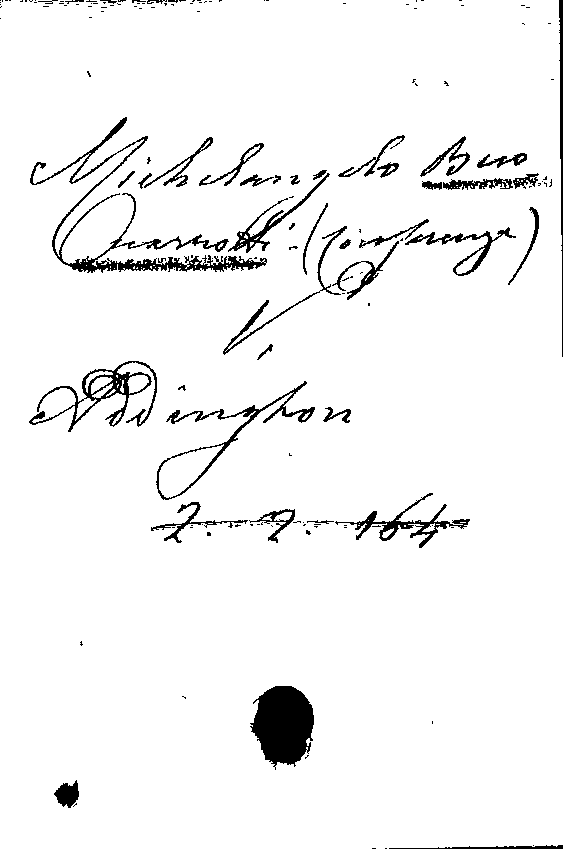 Michelangelo Buo
Onarrotti (Conferenza)
V.
Addington
2. 2. 164